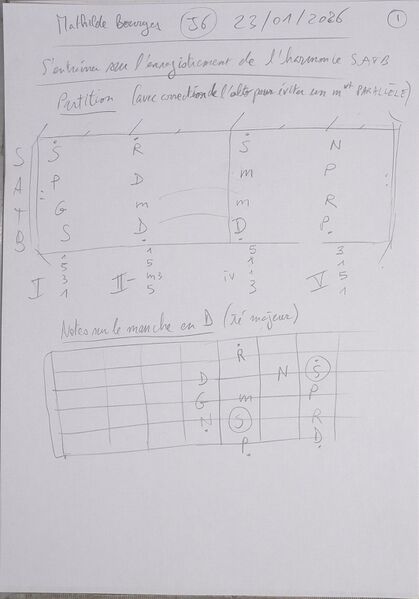 Mathilde Bourges J6 23/01/2026 1
S'entraîner sur l'enregistrement de l'harmonie SATB
Partition (avec correction de l'alto pour éviter un mvt PARALLÈLE)
S Ṡ Ṙ Ṡ N
A P D m P
T G m m R
B S D D P
I 1 5 3 1 II- 1 5 m3 5 iv 5 1 1 3 V 3 1 5 1
Notes sur le manche en D (ré majeur)
Ṙ
D N Ṡ
G m P
N S R
P D